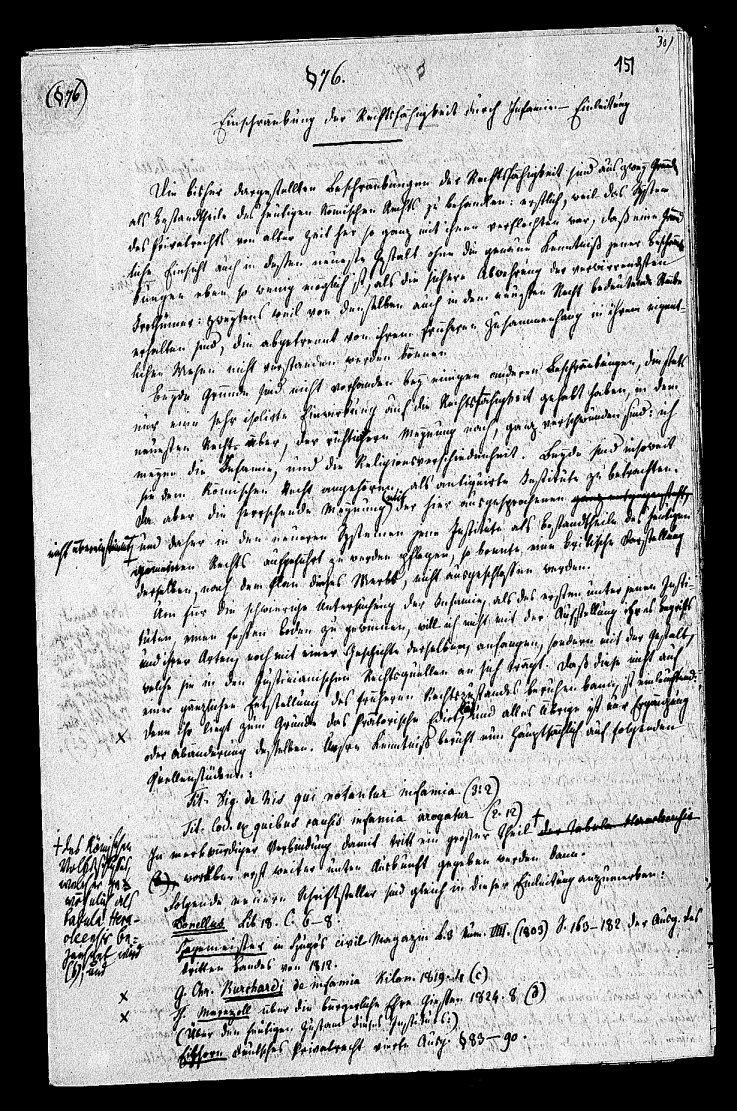 301
151
(§76)
§76.
Einschränkung der Rechtsfähigkeit durch Infamie – Einleitung
Die bisher dargestellten Beschränkungen der Rechtsfähigkeit sind aus zwey Gründen
als Bestandtheile des heutigen Römischen Rechts zu behandeln: erstlich, weil das System
des Privatrechts von alter Zeit her so ganz mit ihnen verflochten war, daß eine gründ
liche Einsicht auch in dessen neueste Gestalt ohne die genaue Kenntniß jener Beschrän
kungen eben so wenig möglich ist, als die sichere Abwehrung der verwirrendsten
Irrthümer: zweytens weil von denselben auch in dem neuesten Recht bedeutende Reste
erhalten sind, die abgetrennt von ihrem früheren Zusammenhang in ihrem eigent-
lichen Wesen nicht verstanden werden können.
Beyde Gründe sind nicht vorhanden bey einigen anderen Beschränkungen, die stets
nur eine sehr isolirte Einwirkung auf die Rechtsfähigkeit gehabt haben, in dem
neuesten Rechte aber, der richtigeren Meynung nach, ganz verschwunden sind: ich
meyne die Infamie, und die Religionsverschiedenheit. Beyde sind insoweit
sie dem Römischen Recht angehören, als antiquirte Institute zu betrachten.
Da aber die herrschende Meynung mit der hier ausgesprochenen
nicht übereinstimmt
und daher in den neueren Systemen jene Institute als Bestandtheile des heutigen
Rechts aufgeführt zu werden pflegen, so konnte eine kritische Darstellung
derselben, nach dem Plan dieses Werks, nicht ausgeschlossen werden.
Um für die schwierige Untersuchung der Infamie, als des ersten unter jenen Insti-
tuten einen festen Boden zu gewinnen, will ich nicht mit der Aufstellung ihres Begriffs
und ihrer Arten, noch mit einer Geschichte derselben, anfangen, sondern mit der Gestalt,
welche sie in den Justinianischen Rechtsquellen an sich trägt. Daß diese nicht auf
einer gänzlichen Entstellung des früheren Rechtszustandes beruhen kann, ist einleuchtend:
denn ihr liegt zum Grunde das Prätorische Edict, und alles Übrige ist nur Ergänzung
oder Abänderung desselben. Unsre Kenntniß beruht nun hauptsächlich auf folgenden
Quellenstücken:
Tit. Dig. de his qui notantur infamia (3. 2)
Tit. Cod. ex quibus causis infamia irrogatur (2. 12)
In merkwürdiger Verbindung damit tritt ein großer Theil † der Tabula Heracleensis
worüber erst weiter unten Auskunft gegeben werden kann.
† des Römischen
Volksschlusses,
welcher ge-
wöhnlich als
tabula Hera-
cleensis be-
zeichnet wird
(b), und
Folgende neuere Schriftsteller sind gleich in dieser Einleitung anzumerken:
Donellus Lib. 18. C. 6–8.
Hagemeister in Hugos civil. Magazin B. 3 Num. VIII. (1803) S. 163–182 der Ausg. des
dritten Bandes von 1812.
× G. Chr. Burchardi de infamia Kilon. 1819. 4 (c)
× Th. Marezoll über die bürgerliche Ehre Giessen 1824. 8. (d)
(Über den heutigen Zustand dieses Instituts:)
Eichhorn deutsches Privatrecht vierte Ausg. §83–90.